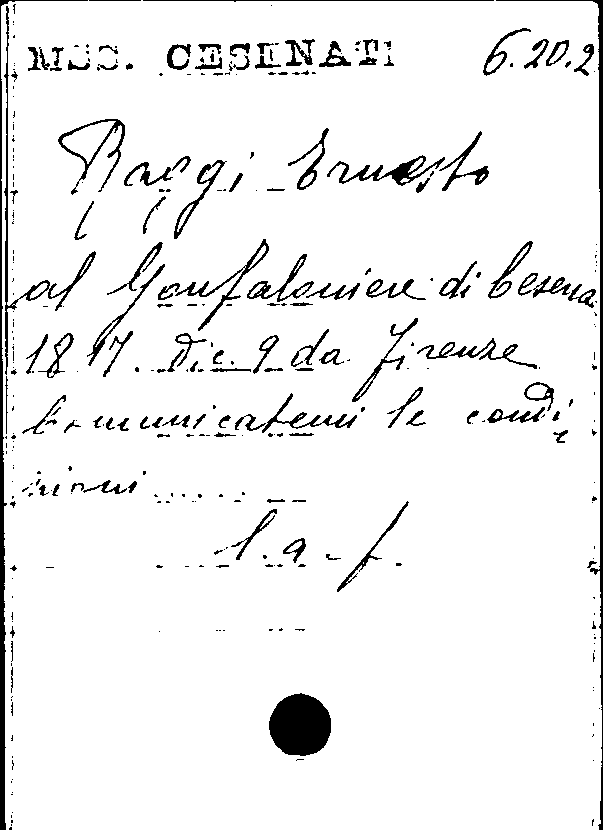 MSS. CESENATI 6.20.2
Raggi Ernesto
al Gonfaloniere di Cesena
1817. Dic. 9 da Firenze
Comunicatemi le condi
zioni ......
l. a. f.